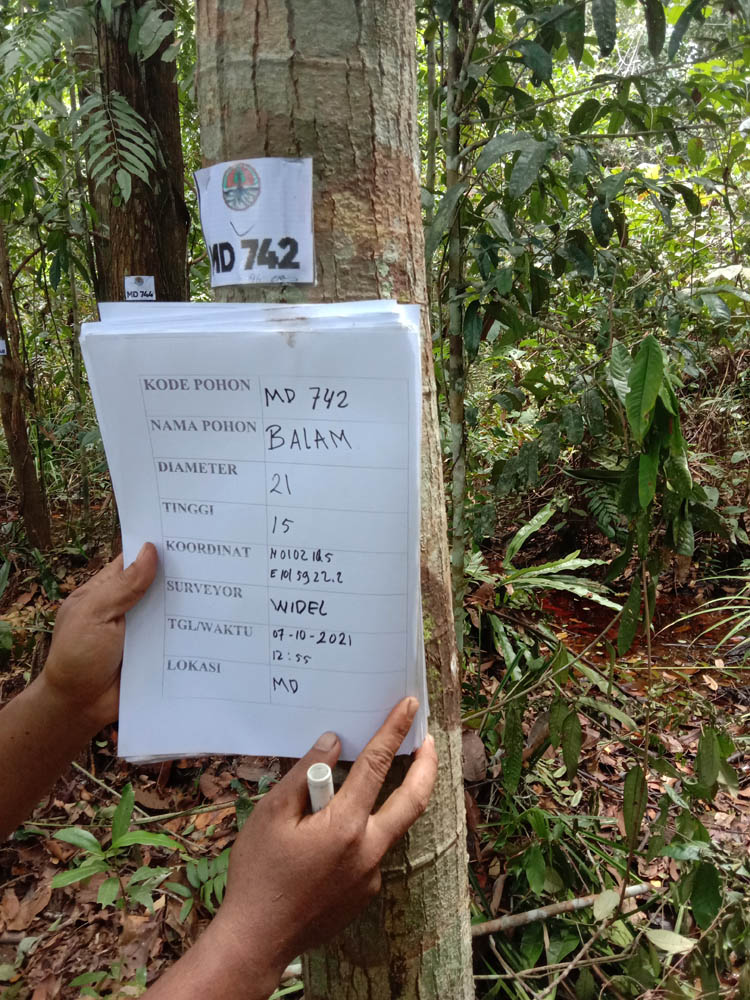 MD 742
MD 744
KODE POHON MD 742
NAMA POHON BALAM
DIAMETER 21
TINGGI 15
KOORDINAT N0102
E101 5922.2
SURVEYOR WIDEL
TGL/WAKTU 07-10-2021
12:55
LOKASI MD